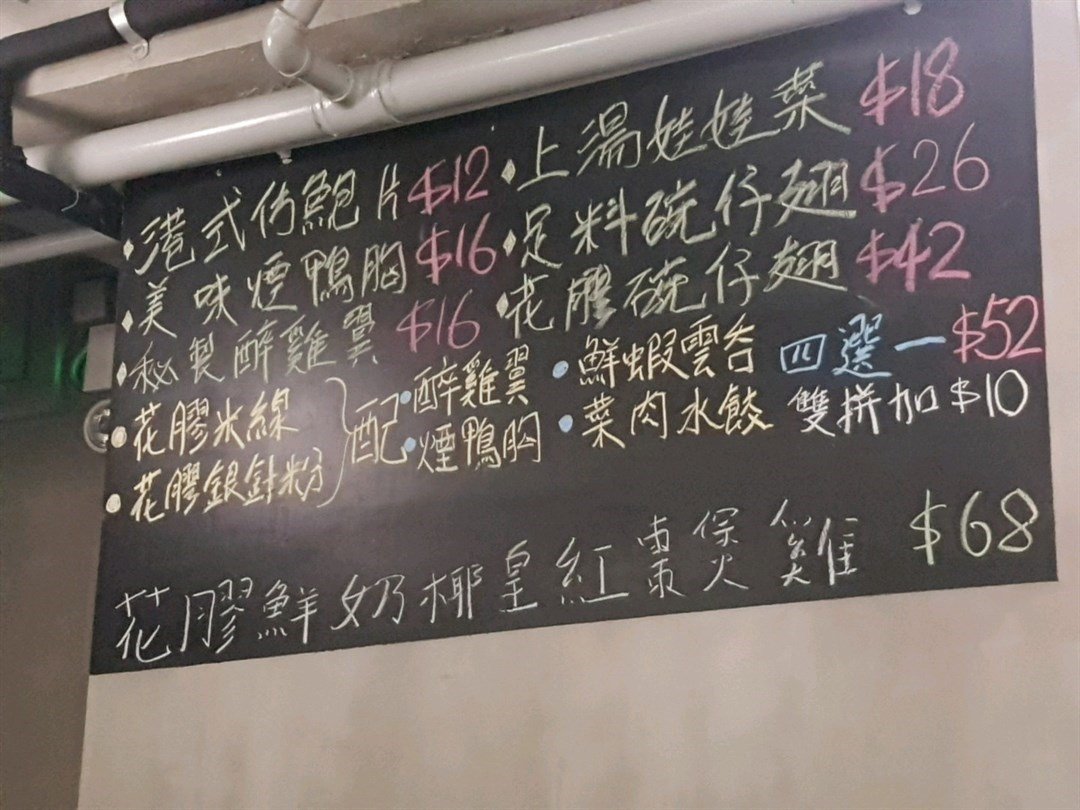 港式仿鮑片$12
美味煙鴨胸$16
秘製醉雞翼$16
上湯娃娃菜$18
足料碗仔翅$26
花膠碗仔翅$42
花膠米線
花膠銀針粉
配
醉雞翼
煙鴨胸
鮮蝦雲呑
菜肉水餃
四選一$52
雙拼加$10
花膠鮮奶椰皇紅棗煲雞 $68